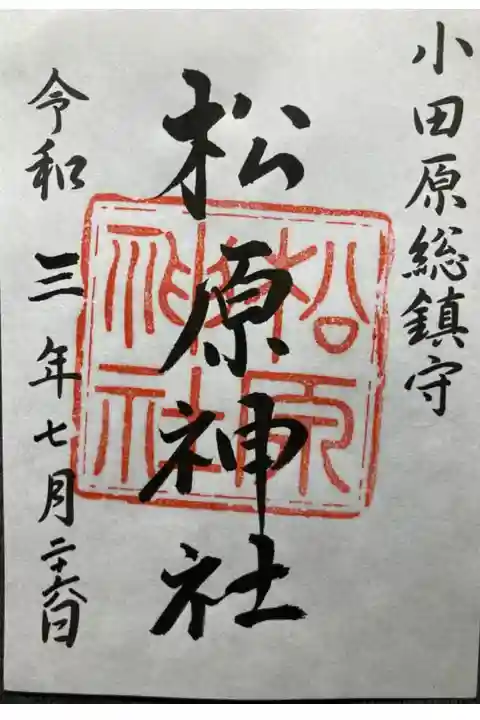 小田原総鎮守
松原神社
松原
神社
令和三年七月二十六日